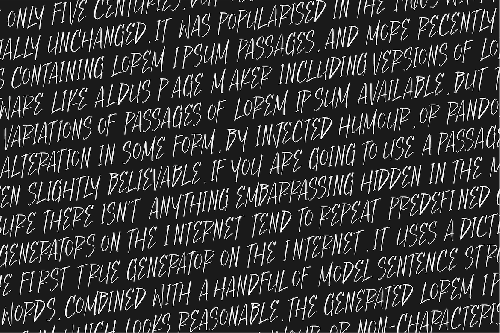 ONLY FIVE CENTURIES, BUT
ALLY UNCHANGED. IT WAS POPULARISED IN THE 1960S
CONTAINING LOREM IPSUM PASSAGES, AND MORE RECENTLY
WARE LIKE ALDUS PAGE MAKER INCLUDING VERSIONS OF LO
VARIATIONS OF PASSAGES OF LOREM IPSUM AVAILABLE, BUT
ALTERATION IN SOME FORM, BY INJECTED HUMOUR, OR RANDO
EN SLIGHTLY BELIEVABLE. IF YOU ARE GOING TO USE A PASSAG
SURE THERE ISN'T ANYTHING EMBARRASSING HIDDEN IN THE
GENERATORS ON THE INTERNET TEND TO REPEAT PREDEFINED
E FIRST TRUE GENERATOR ON THE INTERNET. IT USES A DICT
WORDS, COMBINED WITH A HANDFUL OF MODEL SENTENCE STR
WHICH LOOKS REASONABLE. THE GENERATED LOREM I
OR NON-CHARACTERI